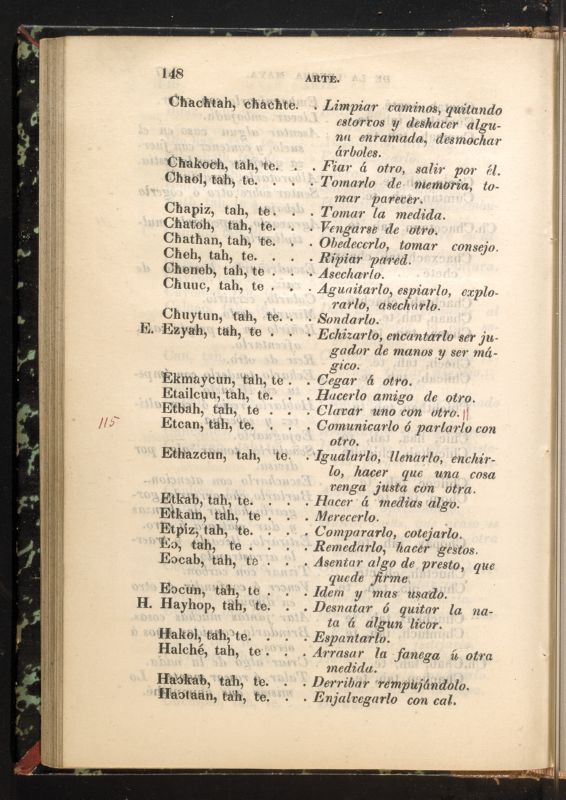 148
ARTE.
Cħacħtah, cħacħte. . Limpiar caminos, quitando
estorvos y deshacer algu-
na enramada, desmochar
árboles.
Cħakoch, tah, te. . . Fiar á otro, salir por él.
Cħaol, tah, te. . . . Tomarlo de memoria, to-
mar parecer.
Cħapiz, tah, te . . . Tomar la medida.
Cħatoh, tah, te. . . Vengarse de otro.
Cħathan, tah, te. . . Obedecerlo, tomar consejo.
Cħeh, tah, te. . . . Ripiar pared.
Cħeneb, tah, te . . . Asecharlo.
Cħuuc, tah, te . . . Aguaitarlo, espiarlo, explo-
rarlo, asecharlo.
Cħuytun, tah, te. . . Sondarlo.
E. Ezyah, tah, te . . . Echizarlo, encantarlo ser ju-
gador de manos y ser má-
gico.
Ekmaycun, tah, te . . Cegar á otro.
Etailcuu, tah, te. . . Hacerlo amigo de otro.
Etbah, tah, te . . . Clavar uno con otro.
115
Etcan, tah, te. . . . Comunicarlo ó parlarlo con
otro.
Ethazcun, tah, te. . Igualarlo, llenarlo, enchir-
lo, hacer que una cosa
venga justa con otra.
Etkab, tah, te. . . . Hacer á medias algo.
Etkam, tah, te . . . Merecerlo.
Etpiz, tah, te. . . . Compararlo, cotejarlo.
Eɔ, tah, te . . . . Remedarlo, hacer gestos.
Eɔcab, tah, te . . . Asentar algo de presto, que
quede firme
Eɔcun, tah, te. . . Idem y mas usado.
H. Hayhop, tah, te. . . Desnatar ó quitar la na-
ta á algun licor.
Hakol, tah, te. . . . Espantarlo.
Halché, tah, te . . . Arrasar la fanega ú otra
medida.
Haɔkab, tah, te. . . Derribar rempujándolo.
Haɔtaan, tah, te. . . Enjalvegarlo con cal.